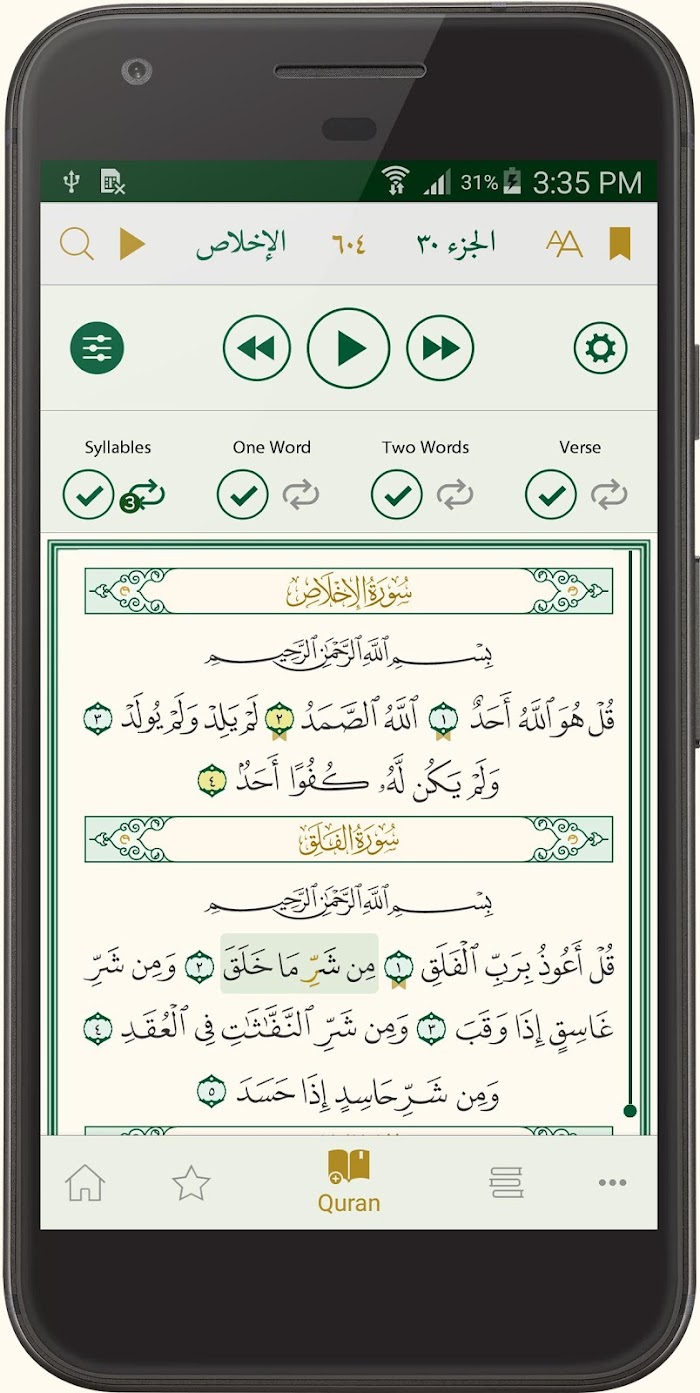 31% 3:35 PM
الإخلاص ٦٠٤ الجزء ٣٠
Syllables One Word Two Words Verse
3
سُورَةُ الإِخْلَاصِ
بِسْمِ اللَّهِ الرَّحْمَٰنِ الرَّحِيمِ
قُلْ هُوَ ٱللَّهُ أَحَدٌ ١ ٱللَّهُ ٱلصَّمَدُ ٢ لَمْ يَلِدْ وَلَمْ يُولَدْ ٣
وَلَمْ يَكُن لَّهُۥ كُفُوًا أَحَدٌۢ ٤
سُورَةُ الفَلَقِ
بِسْمِ اللَّهِ الرَّحْمَٰنِ الرَّحِيمِ
قُلْ أَعُوذُ بِرَبِّ ٱلْفَلَقِ ١ مِن شَرِّ مَا خَلَقَ ٢ وَمِن شَرِّ
غَاسِقٍ إِذَا وَقَبَ ٣ وَمِن شَرِّ ٱلنَّفَّٰثَٰتِ فِي ٱلْعُقَدِ ٤
وَمِن شَرِّ حَاسِدٍ إِذَا حَسَدَ ٥
Quran